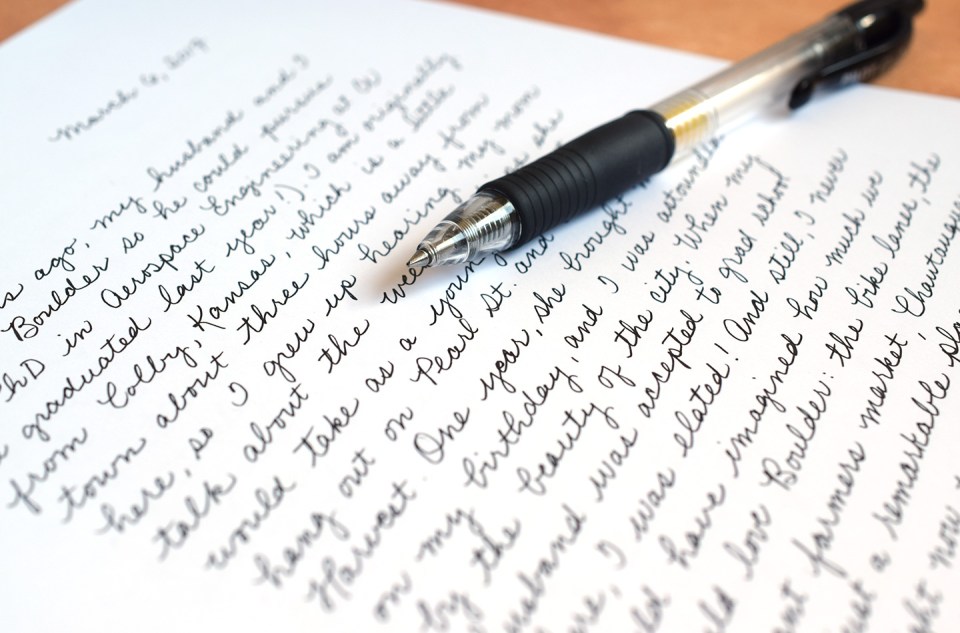 March 6,
ago, my husband and I
Boulder so he could pursue
PhD in Aerospace Engineering at
graduated last year!). I am originally
from Colby, Kansas, which is a little
town about three hours away from
here, so I grew up hearing my mom
talk about the she
would take as a young
hang out on Pearl St. and
Harvest. One year, she brought
on my birthday, and I was
by the beauty of the city. When my
usband was accepted to grad school
re, I was elated! And still, I never
ld have imagined how much we
ld love Boulder: the bike lanes, the
ant farmers market, Chautauq
ust a remarkable pla
ght now